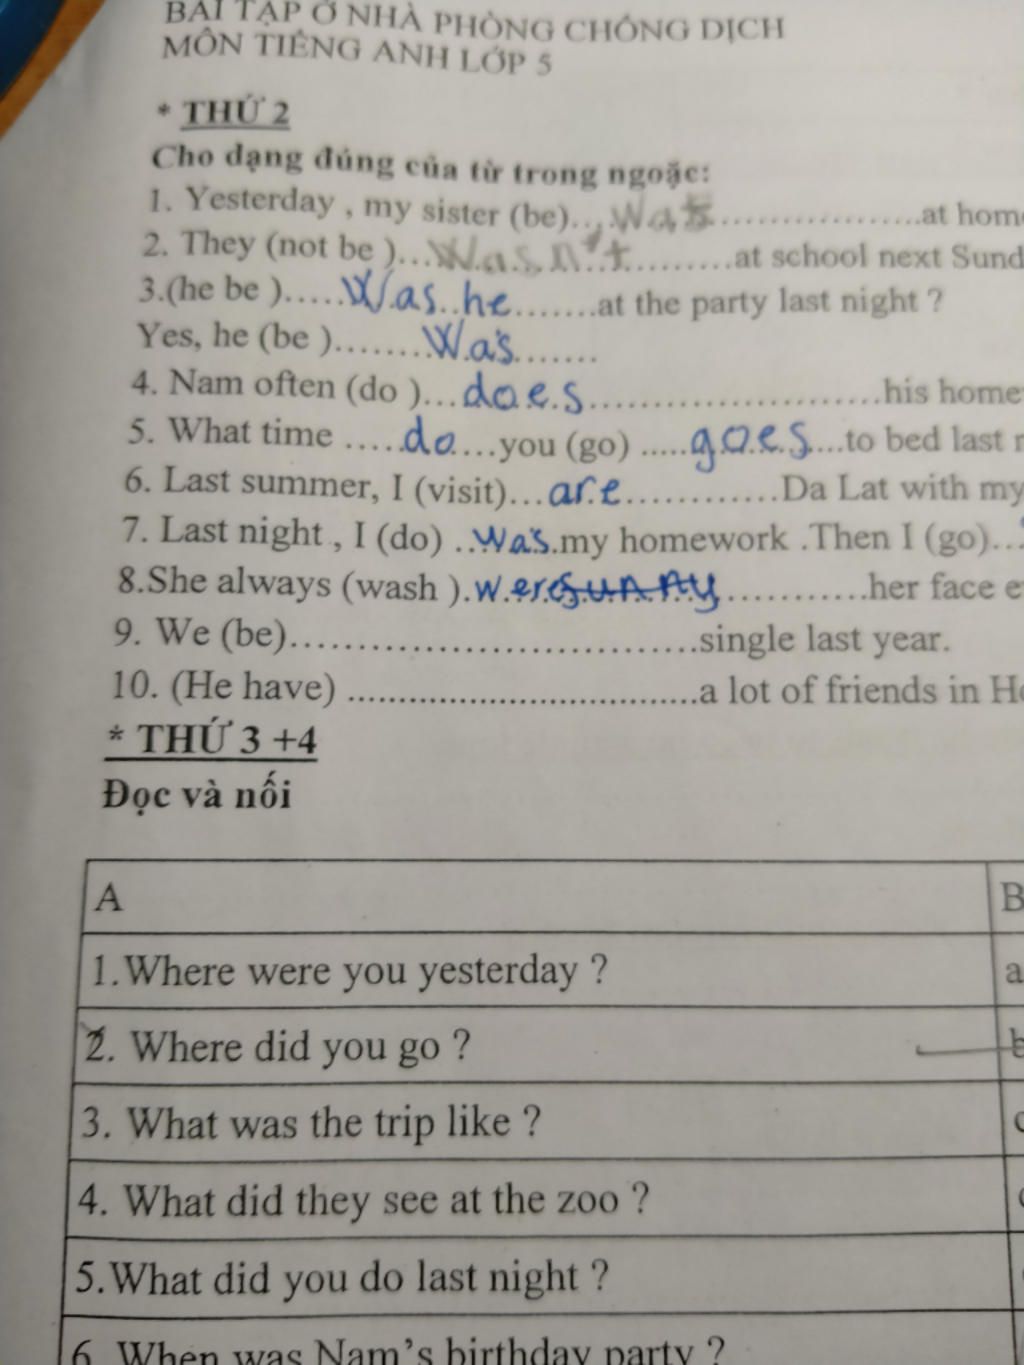 BÀI TẬP Ở NHÀ PHÒNG CHỐNG DỊCH
MÔN TIẾNG ANH LỚP 5
* THỨ 2
Cho dạng đúng của từ trong ngoặc:
1. Yesterday , my sister (be)... was ..................at hom
2. They (not be )...Wasn't.........at school next Sund
3.(he be ).....Was he.......at the party last night ?
Yes, he (be )........Was.......
4. Nam often (do )...does........................his home
5. What time .....do....you (go) .....goes...to bed last
6. Last summer, I (visit)...are............Da Lat with my
7. Last night , I (do) ..was.my homework .Then I (go)...
8.She always (wash ).were...........her face e
9. We (be)..................................single last year.
10. (He have) ..................................a lot of friends in H
* THỨ 3 +4
Đọc và nối
A
B
1.Where were you yesterday ?
a
2. Where did you go ?
b
3. What was the trip like ?
4. What did they see at the zoo ?
5.What did you do last night ?
6. When was Nam's birthday party ?